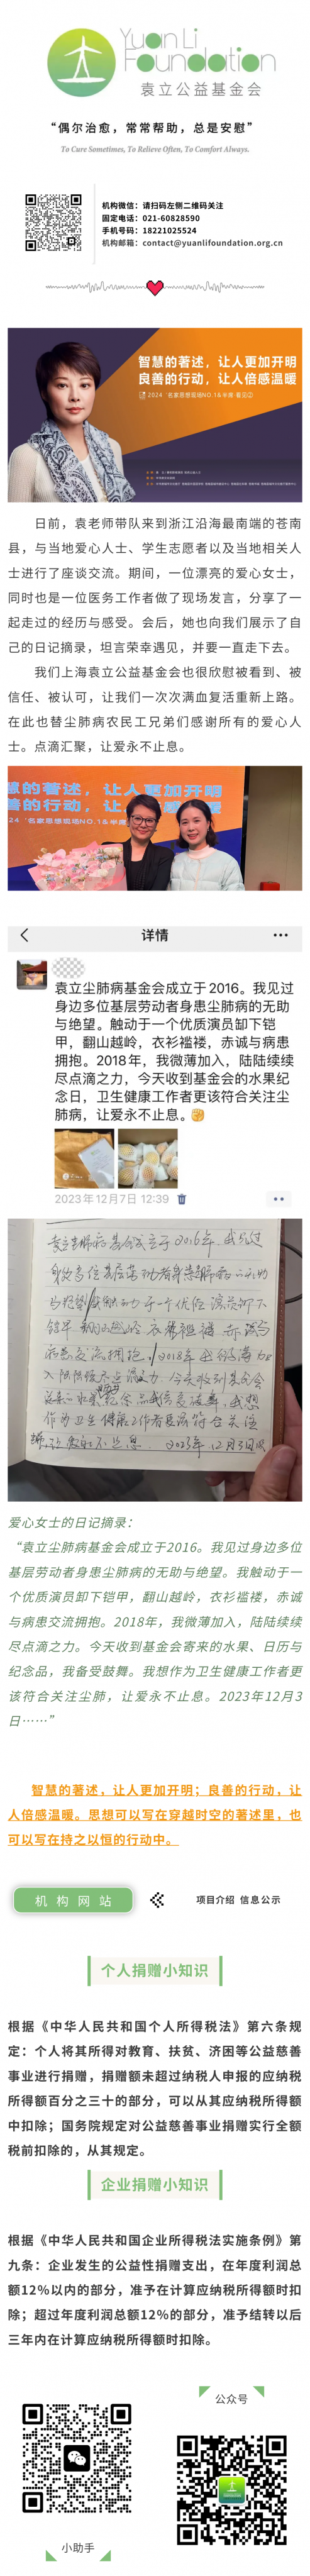 Yuan Li
Foundation
袁立公益基金会
“偶尔治愈，常常帮助，总是安慰”
To Cure Sometimes, To Relieve Often, To Comfort Always.
机构微信：请扫码左侧二维码关注
固定电话：021-60828590
手机号码：18221025524
机构邮箱：contact@yuanlifoundation.org.cn
智慧的著述，让人更加开明
良善的行动，让人倍感温暖
2024‘名家思想现场NO.1&半席·看见②
日前，袁老师带队来到浙江沿海最南端的苍南
县，与当地爱心人士、学生志愿者以及当地相关人
士进行了座谈交流。期间，一位漂亮的爱心女士，
同时也是一位医务工作者做了现场发言，分享了一
起走过的经历与感受。会后，她也向我们展示了自
己的日记摘录，坦言荣幸遇见，并要一直走下去。
我们上海袁立公益基金会也很欣慰被看到、被
信任、被认可，让我们一次次满血复活重新上路。
在此也替尘肺病农民工兄弟们感谢所有的爱心人
士。点滴汇聚，让爱永不止息。
慧的著述，让人更加开明
善的行动，让人
024‘名家思想现场NO.1&半席
详情
袁立尘肺病基金会成立于2016。我见过
身边多位基层劳动者身患尘肺病的无助
与绝望。触动于一个优质演员卸下铠
甲，翻山越岭，衣衫褴褛，赤诚与病患
拥抱。2018年，我微薄加入，陆陆续续
尽点滴之力，今天收到基金会的水果纪
念日，卫生健康工作者更该符合关注尘
肺病，让爱永不止息。
2023年12月7日 12:39
袁立尘肺病基金会成立于2016年，我见过
身边多位基层劳动者身患尘肺病的无助
2023年12月3日
爱心女士的日记摘录：
“袁立尘肺病基金会成立于2016。我见过身边多位
基层劳动者身患尘肺病的无助与绝望。我触动于一
个优质演员卸下铠甲，翻山越岭，衣衫褴褛，赤诚
与病患交流拥抱。2018年，我微薄加入，陆陆续续
尽点滴之力。今天收到基金会寄来的水果、日历与
纪念品，我备受鼓舞。我想作为卫生健康工作者更
该符合关注尘肺，让爱永不止息。2023年12月3
日……”
智慧的著述，让人更加开明；良善的行动，让
人倍感温暖。思想可以写在穿越时空的著述里，也
可以写在持之以恒的行动中。
机构网站
项目介绍 信息公示
个人捐赠小知识
根据《中华人民共和国个人所得税法》第六条规
定：个人将其所得对教育、扶贫、济困等公益慈善
事业进行捐赠，捐赠额未超过纳税人申报的应纳税
所得额百分之三十的部分，可以从其应纳税所得额
中扣除；国务院规定对公益慈善事业捐赠实行全额
税前扣除的，从其规定。
企业捐赠小知识
根据《中华人民共和国企业所得税法实施条例》第
九条：企业发生的公益性捐赠支出，在年度利润总
额12%以内的部分，准予在计算应纳税所得额时扣
除；超过年度利润总额12%的部分，准予结转以后
三年内在计算应纳税所得额时扣除。
公众号
小助手